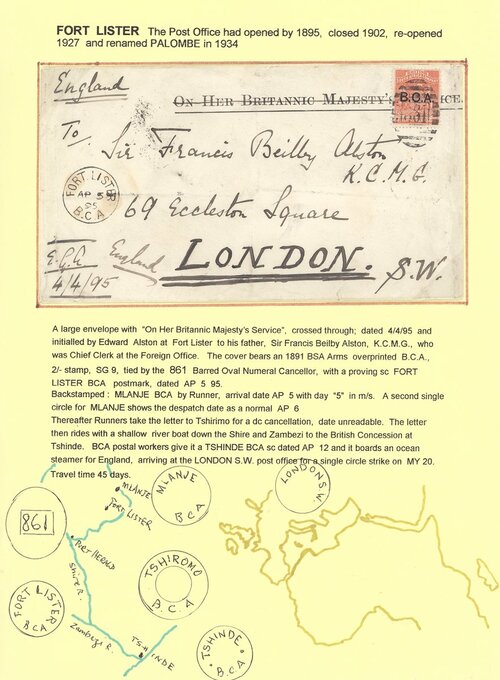 FORT LISTER The Post Office had opened by 1895, closed 1902, re-opened
1927 and renamed PALOMBE in 1934
England
On Her Britannic Majesty's
ICE.
B.C.A.
To
Sir Francis Beilby Alston
K.C.M.G.
FORT LISTER
AP 5
95
B.C.A
69 Eccleston Square
England
LONDON.
S.W.
4/4/95
A large envelope with "On Her Britannic Majesty's Service", crossed through; dated 4/4/95 and
initialled by Edward Alston at Fort Lister to his father, Sir Francis Beilby Alston, K.C.M.G., who
was Chief Clerk at the Foreign Office. The cover bears an 1891 BSA Arms overprinted B.C.A.,
2/- stamp, SG 9, tied by the 861 Barred Oval Numeral Cancellor, with a proving sc FORT
LISTER BCA postmark, dated AP 5 95.
Backstamped : MLANJE BCA by Runner, arrival date AP 5 with day "5" in m/s. A second single
circle for MLANJE shows the despatch date as a normal AP 6
Thereafter Runners take the letter to Tshirimo for a dc cancellation, date unreadable. The letter
then rides with a shallow river boat down the Shire and Zambezi to the British Concession at
Tshinde. BCA postal workers give it a TSHINDE BCA sc dated AP 12 and it boards an ocean
steamer for England, arriving at the LONDON S.W. post office for a single circle strike on MY 20.
Travel time 45 days.
MLANJE
FORT LISTER
MLANJE
BCA
LONDON S.W.
861
PORT HERALD
Shire R.
TSHIROMO
B.C.A
FORT LISTER
BCA
Zambezi R.
TSHINDE
TSHINDE
B.C.A